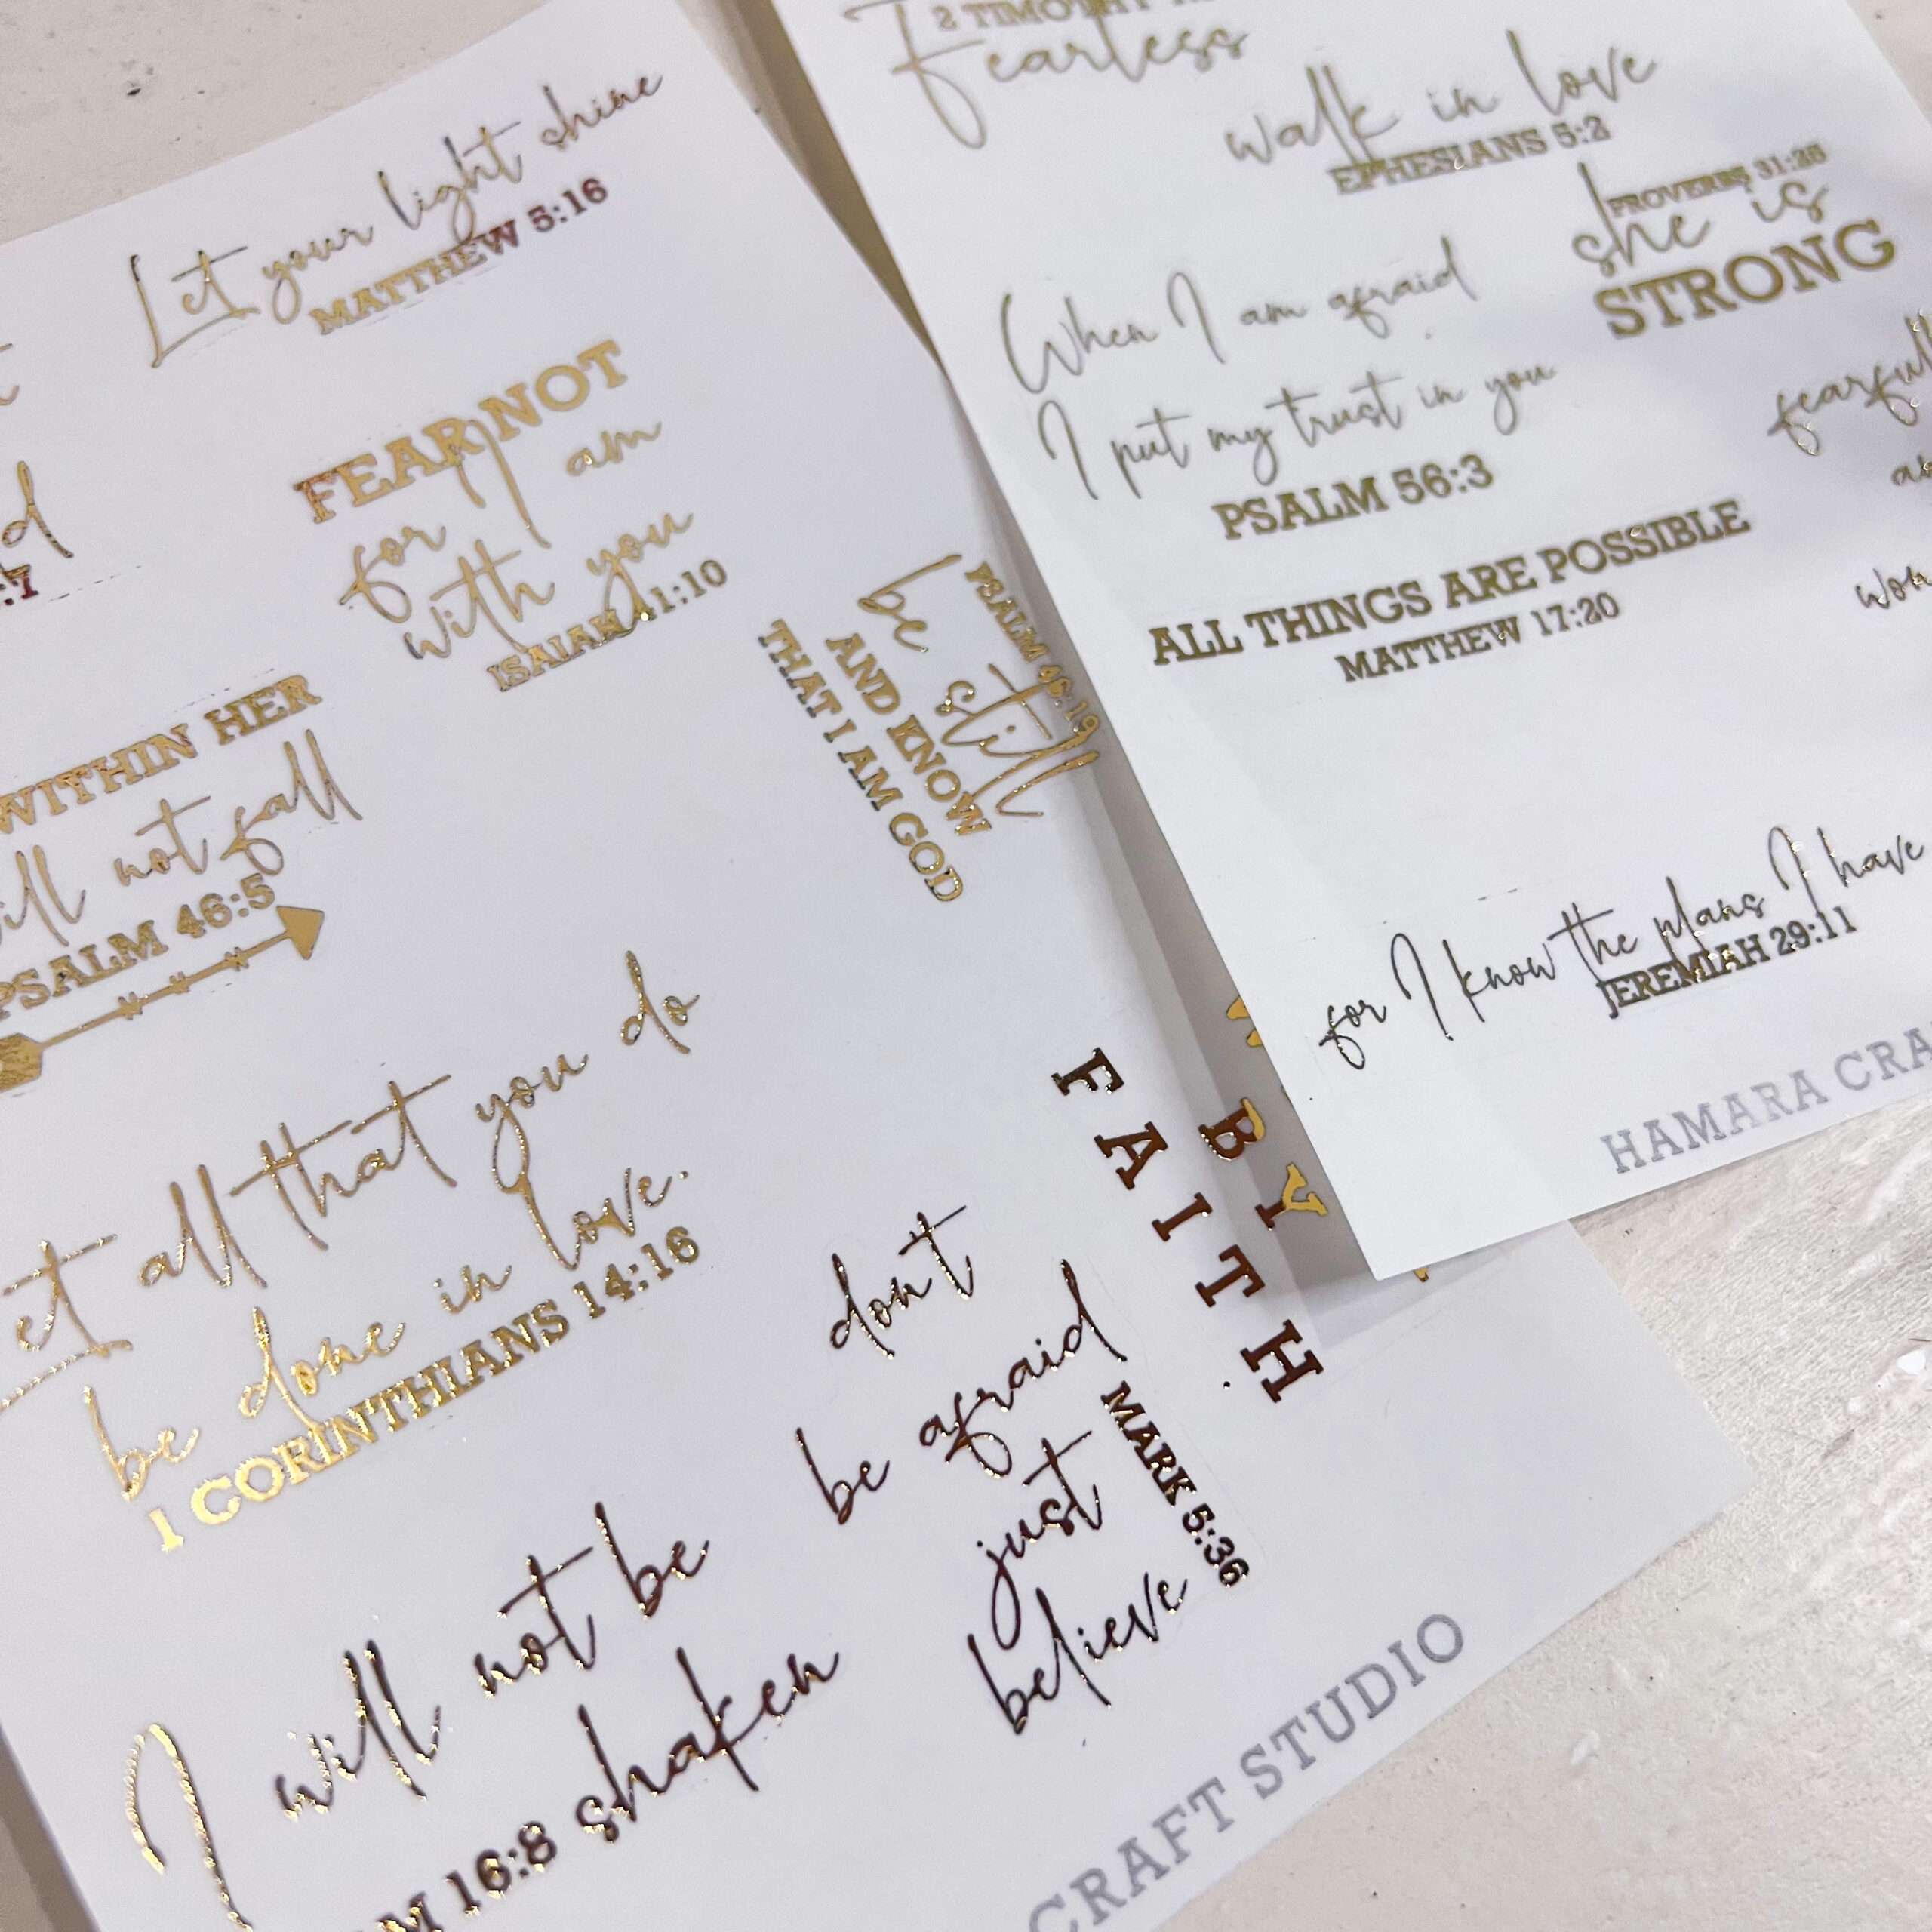 Let your light shine
MATTHEW 5:16
FEAR NOT
for I am
with you
ISAIAH 41:10
:7
WITHIN HER
will not fall
PSALM 46:5
PSALM 46:19
be still
AND KNOW
THAT I AM GOD
et all that you do
be done in love.
1 CORINTHIANS 14:16
BY
FAITH
don't
be afraid
just
believe
MARK 5:36
I will not be
shaken
M 16:8
CRAFT STUDIO
2 TIMOTHY
Fearless
walk in love
EPHESIANS 5:2
PROVERBS 31:25
she is
STRONG
When I am afraid
I put my trust in you
PSALM 56:3
fearfull
ALL THINGS ARE POSSIBLE
MATTHEW 17:20
won
for I know the plans I have
JEREMIAH 29:11
HAMARA CRA